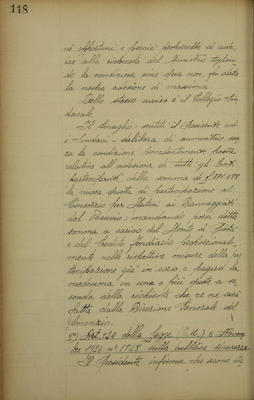 118
nè opportuni e perciò proporrebbe di ade
rire alla richiesta del Ministro toglien
do la condizione sine qua non, fin data
la nostra adesione di massima.
Dello stesso avviso è il Collegio Sin
dacale.
Il Consiglio - sentiti il Presidente ed
i Sindaci - delibera di aumentare sen
za la condizione precedentemente posta
relativa all'adesione di tutti gli Enti
partecipanti, della somma di
la nuova quota di partecipazione al
Consorzio per Mutui ai Danneggiati
del Vesuvio; mandando porsi detta
somma a carico del Monte di Pietà
e del Credito fondiario proporzional
mente nelle rispettive misure della par
tecipazione già in corso e pagarsi la
medesima in una o più quote a se
conda della richiesta che ce ne sarà
fatta dalla Direzione Generale del
Consorzio.
8°) Art. 130 della Legge (T.U.) 6 Novem
bre 1926 n° 1848 sulla pubblica sicurezza
Il Presidente informa che siamo sta